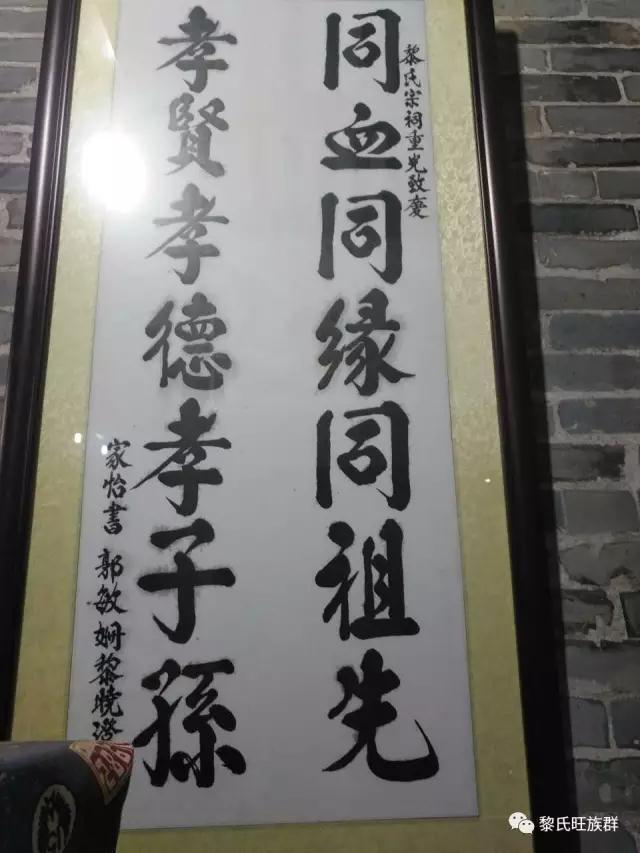 黎氏宗祠重光致慶
同血同緣同祖先
孝賢孝德孝子孫
家怡書 郭敏婀黎曉澄
黎氏旺族群